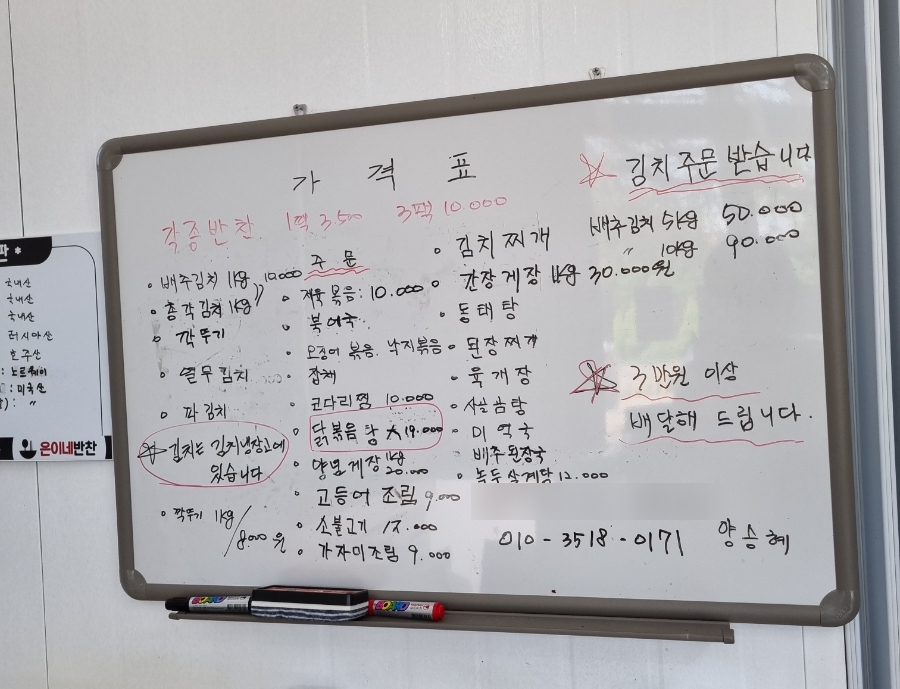 가격표
각종반찬 1팩 3.500 3팩 10.000
• 배추김치 1kg 10.000
• 총각김치 1kg 〃
• 깍뚜기
• 열무김치
• 파김치
김치는 김치냉장고에
있습니다
• 깍뚜기 1kg/8000원
주문
• 제육볶음: 10.000
• 북어국
• 오징어볶음. 낙지볶음
• 잡채
• 코다리찜 10.000
• 닭볶음탕 大 19.000
• 양념게장 1kg 20.000
• 고등어조림 9.000
• 소불고기 12.000
• 가자미조림 9.000
• 김치찌개
• 간장게장 1kg 30.000원
• 동태탕
• 된장찌개
• 육개장
• 사골곰탕
• 미역국
• 배추된장국
• 녹두삼계탕 12.000
김치주문받습니다
배추김치 5kg 50.000
〃 10kg 90.000
3만원 이상
배달해 드립니다.
010-3518-0171 양승혜
판 *
국내산
국내산
국내산
러시아산
호주산
: 노르웨이
: 미국산
): 〃
온이네반찬